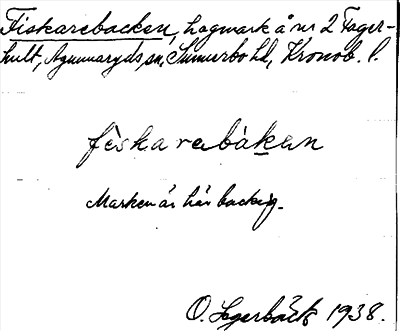 Fiskarebacken, hagmark å nr 2 Fager-
hult, Agunnaryds sn, Sunnerbo hd, Kronob. l.
fiskarebàkan
Marken är här backig.
O. Lagerbäck 1938.